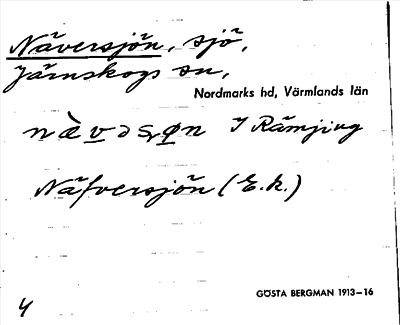 Näversjön, sjö,
Järnskogs sn,
Nordmarks hd, Värmlands län
I Rämjing
Näfversjön (E.k.)
GÖSTA BERGMAN 1913–16
4